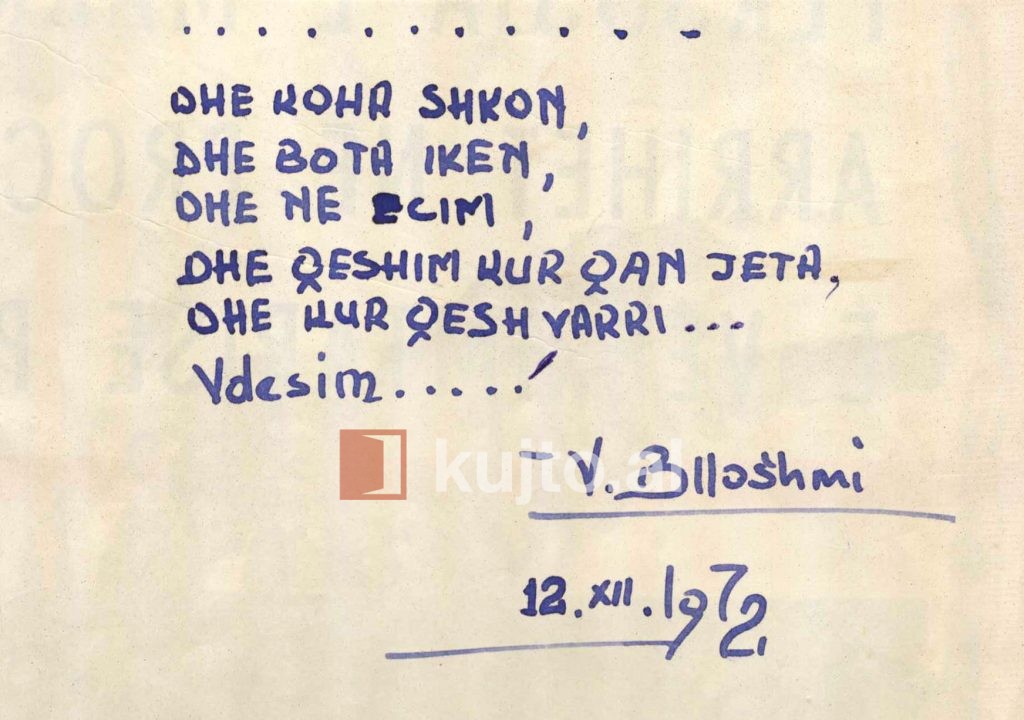 . . . . . . . . . . . -
DHE KOHA SHKON,
DHE BOTA IKEN,
DHE NE ECIM,
DHE QESHIM KUR QAN JETA,
DHE KUR QESH VARRI...
Vdesim.....
kujto.al
- V. Blloshmi
12.XII.1972.